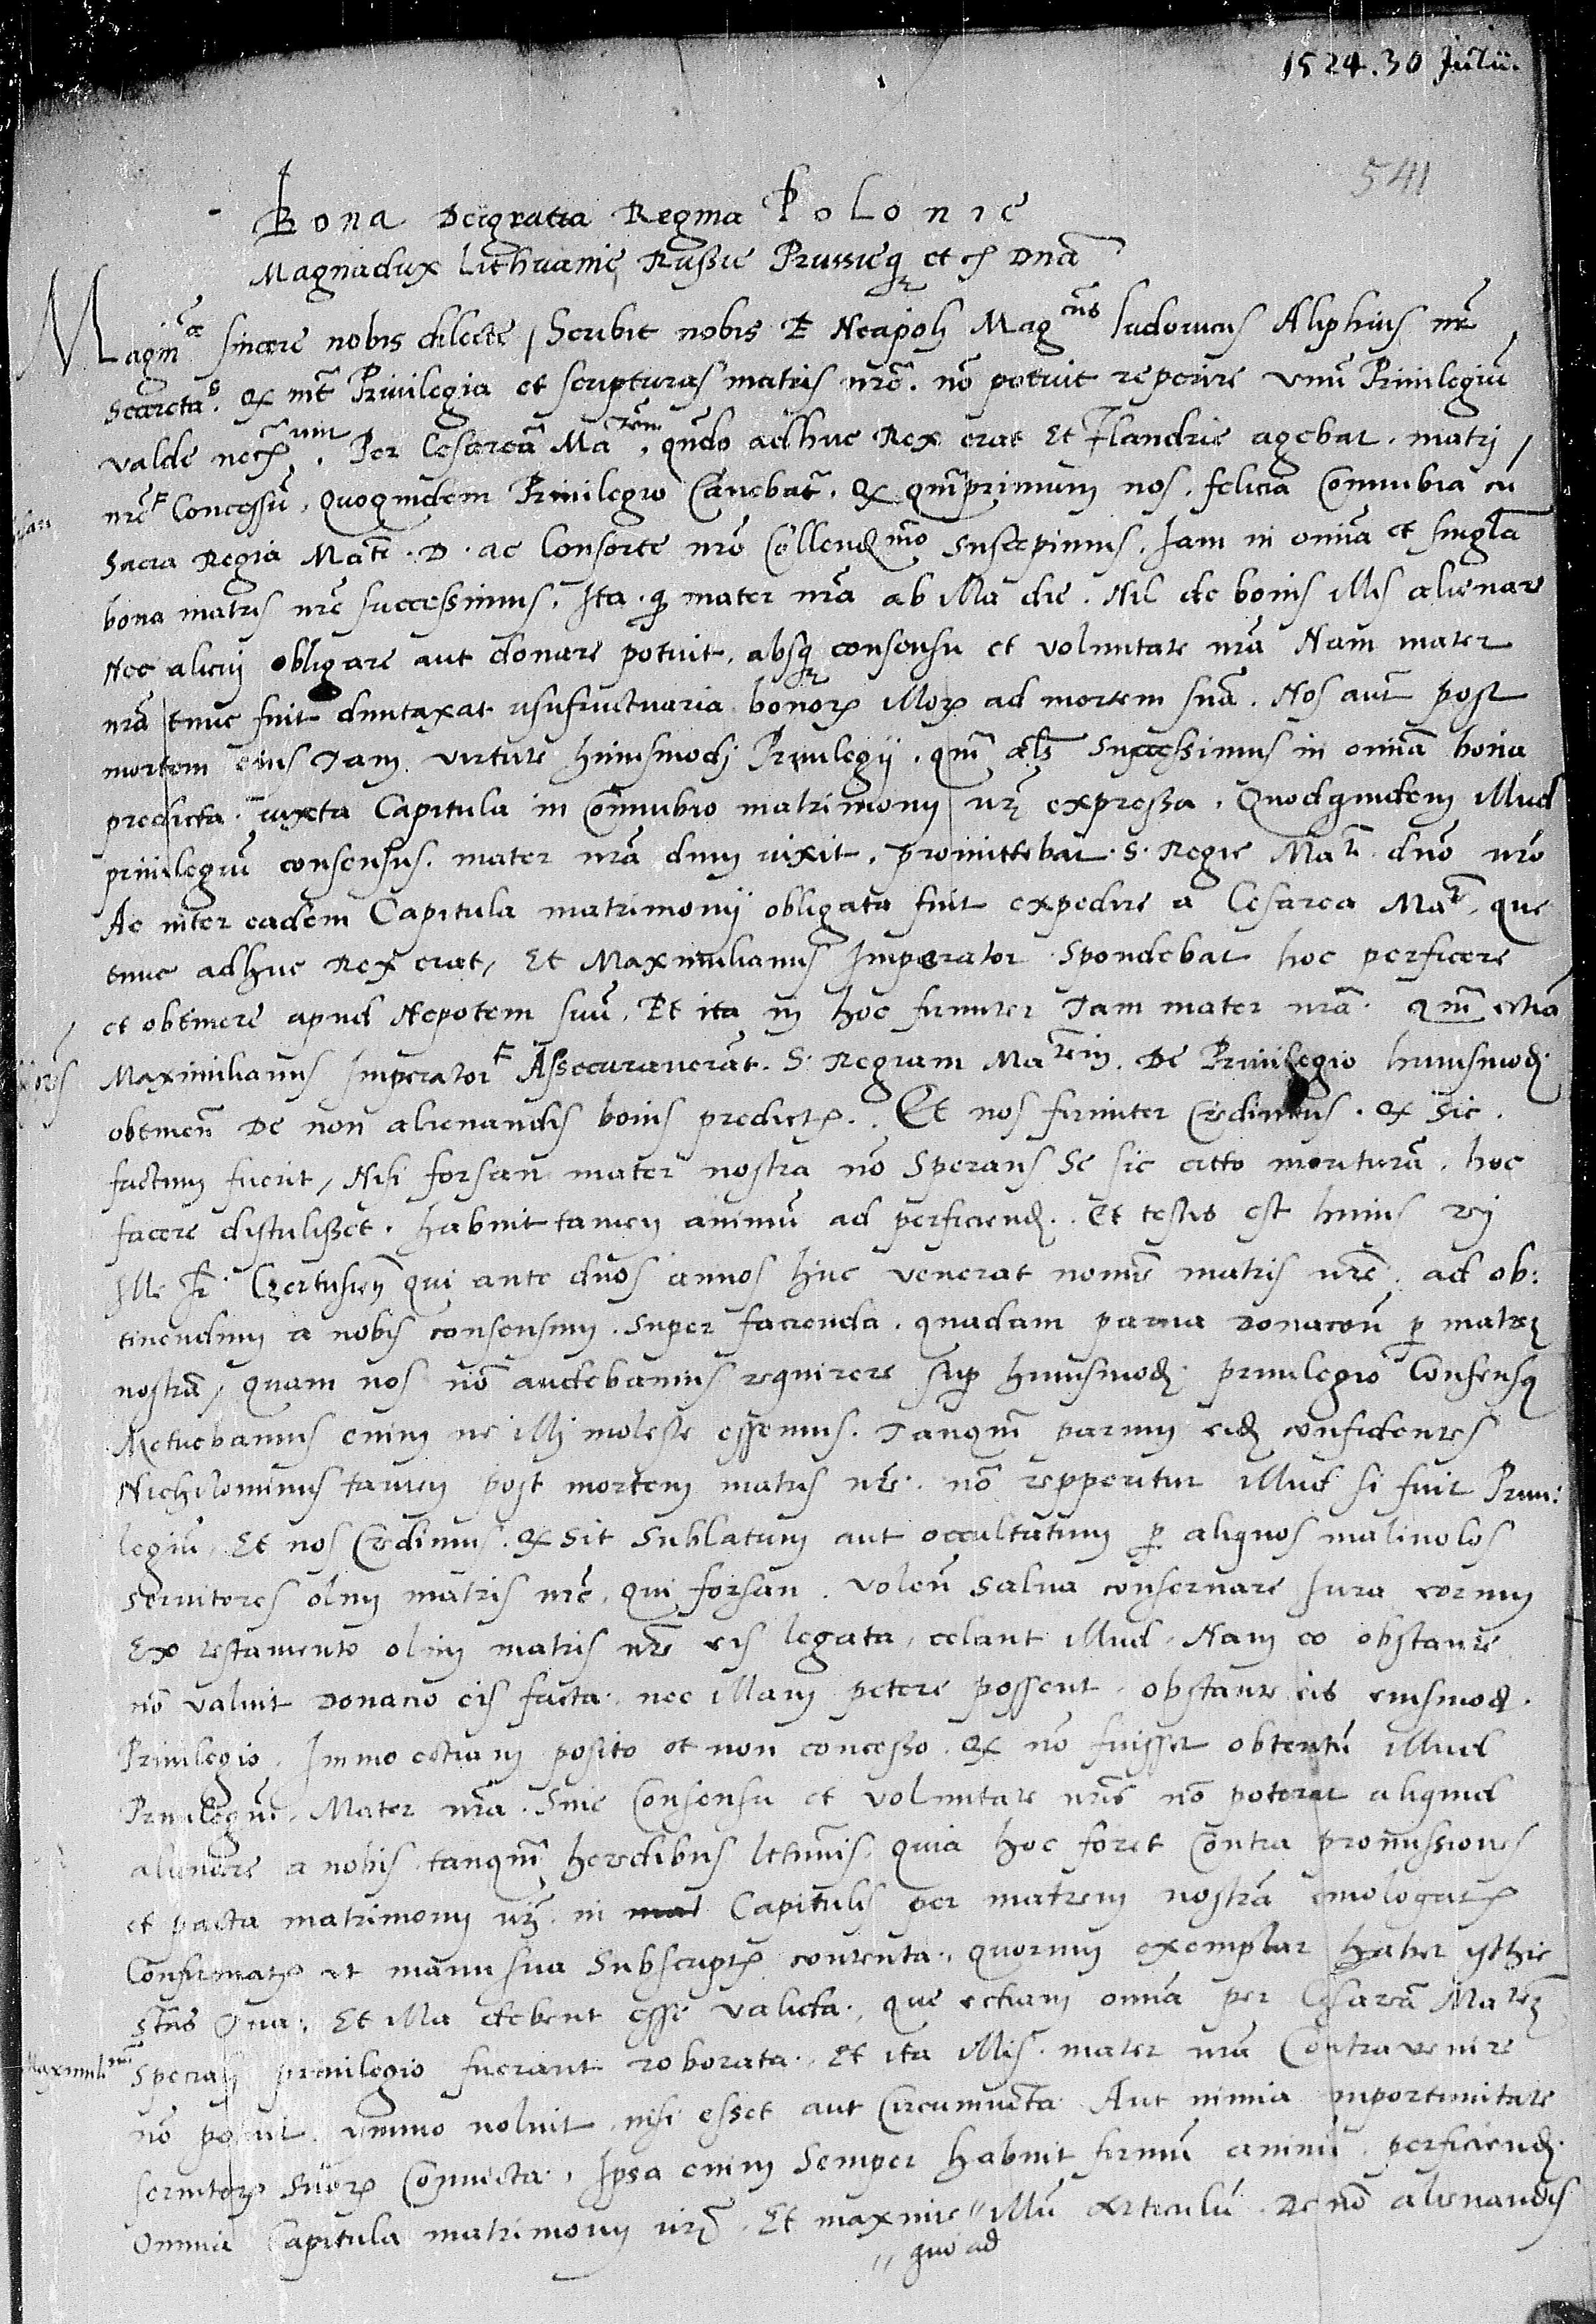 1524. 30 Julii.
541
Bona Deigratia Regina Polonie
Magnadux Lithuanie, Russie Prussieq3 etc Dnā
Magnce sincere nobis dilecte, Scribit nobis E Neapoli Magcus ludovicus Aliphius nr̄
Secretas. qx int̄ Privilegia et scripturas matris nrē. nō potuit reperire unū Privilegiū
valde necrium. Per Cesareā Matem. qndo adhuc Rex erat Et Flandrie agebat. matri
nrē Concessū, quoquidem Privilegio Cavebatr̄. qx qm̄primum nos. felicia Connubia cū
Sacra Regia Matē. D. ac Consorte nrō Collendmo suscepimus. Iam in omīa et singla
bona matris nrē successimus. Ita. qp mater nrā ab illa die. Nil de bonis illis alienare
Nec alicuj obligare aut donare potuit. absq3 consensu et voluntate nrā Nam mater
nrā tunc fuit duntaxat usufructuaria bonorꝝ illorꝝ ad mortem suā. Nos aut̄ post
mortem eius Tam virtute huiusmodj Privilegij. qm̄ als Successimus in omīa bona
predicta. iuxta Capitula in Connubio matrimonij nrj expressa. Quodquidem illud
privilegiū consensus. mater nrā dum vixit. promittebat. S. Regie Mati. dnō nrō
Ac inter eadem Capitula matrimonij obligata fuit expedire a Cesarea Mate, que
tunc adhuc Rex erat, Et Maximilianus Imperator. Spondebat hoc perficere
et obtinere apud Nepotem suū. Et ita in hoc firmiter Tam mater nrā. qm̄ etiā
Maximilianus Imperator Assecuraverāt. S. Regiam Matem. De Privilegio huiusmodj
obtinen̄ De non alienandis bonis predictꝝ. Et nos firmiter Credimus. qx sic.
factum fuerit, Nisi forsan mater nostra nō Sperans Se sic citto morituram. hoc
facere distulisset. habuit tamen animū ad perficiend. Et testis est huius rej
Ille fr̄. Certusien̄ qui ante duos annos huc venerat nomīe matris nrē. ad ob:
tinendum a nobis consensum. super facienda. quadam parva donacōn̄ p̄ matrē
nostrā, quam nos nō audebamus requirere sup̄ huiusmodj privilegio Consensꝯ
Metuebamus enim ne illj moleste essemus. Tanqm̄ parum eid confidentes
Nichilominus tamen post mortem matris nrē. nō repperitur illud si fuit Privi:
legiū. Et nos Credimus. qx sit sublatum aut occultatum p̄ aliquos malivolos
servitores olim matris nrē, qui forsan. volen̄ salva conservare Jura eorum
Ex testamento olim matris nrē eis legata, celant illud. Nam eo obstante
nō valuit donacio eis facta. nec illam petere possent. obstante eis eiusmodj.
Privilegio. Immo etiam posito et non concesso. qx nō fuisset obtentū illud
Privilegiū. Mater nrā. Sine Consensu et voluntate nrīs nō poterat aliquid
alienare a nobis tanqm̄ heredibus letimis. quia hoc foret Contra promissiones
et pacta matrimonij nrj. in Capitulis per matrem nostrā emologatꝝ
Confirmatꝝ et manu sua Subscriptꝝ contenta. quorum exemplar habet isthic
Stnis Tua. Et illa debent esse valida. que etiam omīa per Cesareā Matem
Maximilnū Speciali privilegio fuerant roborata. Et ita illis. mater nrā Contravenire
nō potuit. ymmo noluit. nisi esset aut Circumventa Aut nimia importunitate
servitorꝝ suorꝝ Convicta. Ipsa enim Semper habuit firmū animū. perficiend.
Omnia Capitula matrimonij nrj. Et maxime " illū articulū. De nō alienandis
" quo ad